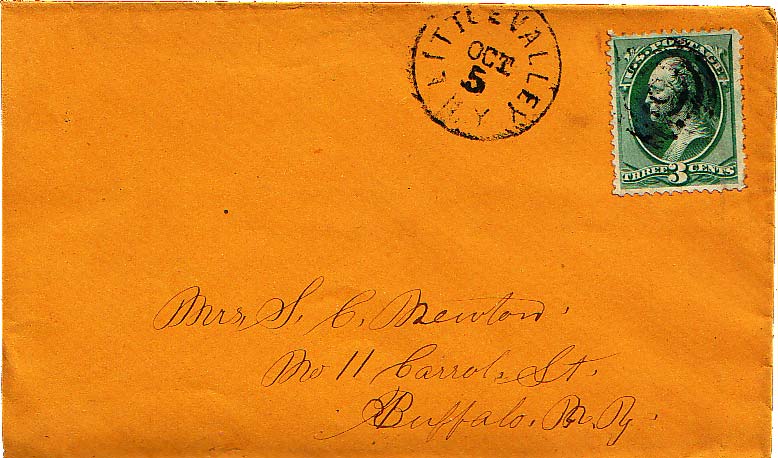 LITTLE VALLEY
N Y
OCT
5
U.S. POSTAGE
THREE 3 CENTS
Mrs, S. C. Newton.
No 11 Carrol. St.
Buffalo. N. Y.